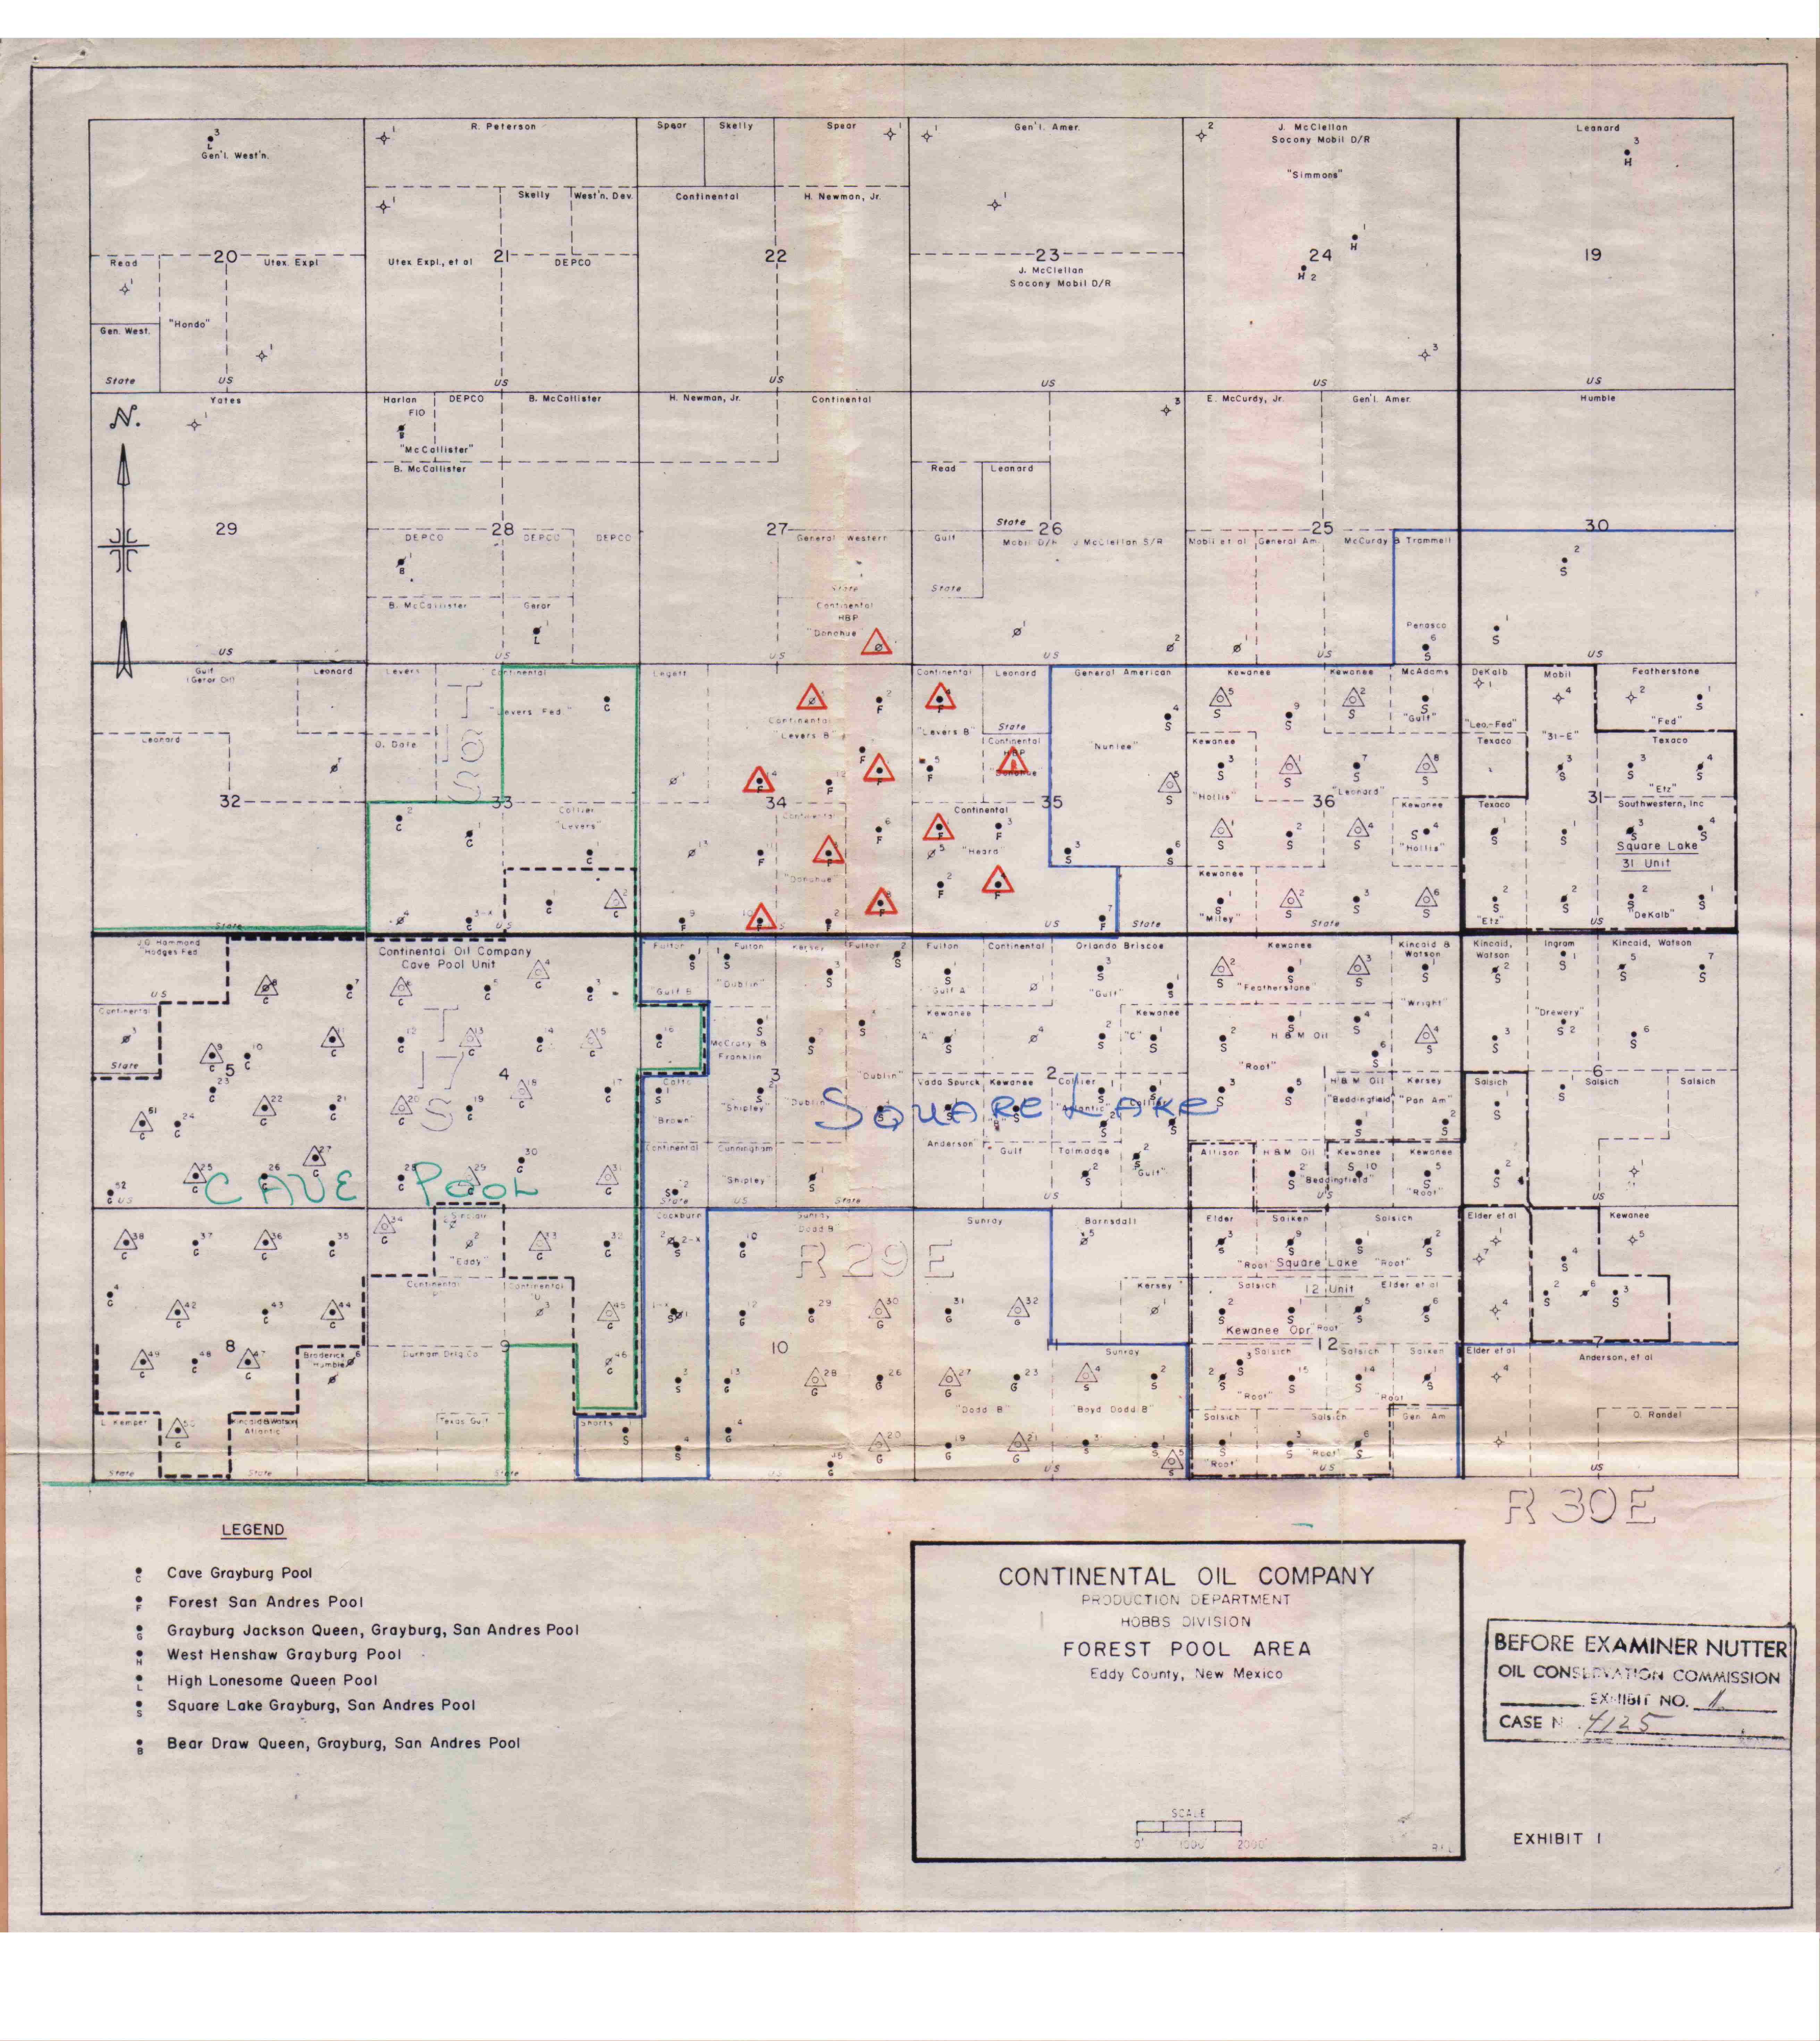 R. Peterson
Spear
Skelly
Spear
Gen'l. Amer.
J. McClellan
Socony Mobil D/R
"Simmons"
Leonard
Gen'l. West'n.
Skelly
West'n. Dev.
Continental
H. Newman, Jr.
Read
20
Utex. Expl
Utex Expl., et al
21
DEPCO
22
23
J. McClellan
Socony Mobil D/R
24
19
Gen. West.
"Hondo"
State
US
US
US
US
US
US
N.
Yates
Harlan
F10
DEPCO
B. McCallister
H. Newman, Jr.
Continental
E. McCurdy, Jr.
Gen'l. Amer.
Humble
"McCallister"
B. McCallister
Read
Leonard
29
28
27
State
26
25
30
DEPCO
DEPCO
DEPCO
General Western
Gulf
Mobil D/R
J McClellan S/R
Mobil et al
General Am.
McCurdy & Trammell
State
State
B. McCallister
Geror
Continental
HBP
"Donohue"
Penasco
US
US
US
US
US
US
Gulf
(Geror Oil)
Leonard
Levers
Continental
Legett
Continental
Leonard
General American
Kewanee
Kewanee
McAdams
DeKalb
Mobil
Featherstone
"Levers Fed."
Continental
"Levers B"
"Levers B"
State
Continental
HBP
"Donohue"
"Nunlee"
"Gulf"
"Leo.-Fed"
"31-E"
"Fed"
Leonard
O. Dale
Kewanee
Texaco
Texaco
T
16
S
32
33
34
35
36
31
"Hollis"
"Leonard"
Kewanee
"Etz"
Southwestern, Inc
Texaco
Collier
"Levers"
Continental
Continental
"Heard"
"Hollis"
Square Lake
31 Unit
"Donohue"
Kewanee
"Miley"
"Etz"
"DeKalb"
State
US
US
State
State
US
J.G. Hammond
"Hodges Fed
Continental Oil Company
Cave Pool Unit
Fulton
Fulton
Kersey
Fulton
Fulton
Continental
Orlando Briscoe
Kewanee
Kincaid &
Watson
Kincaid,
Watson
Ingram
Kincaid, Watson
US
Continental
State
Gulf B
"Dublin"
Gulf A
"Gulf"
"Featherstone"
"Wright"
"Drewery"
T
17
S
McCrary &
Franklin
Kewanee
"A"
Kewanee
"C"
H & M Oil
"Root"
5
4
3
2
6
"Dublin"
"Brown"
"Shipley"
"Dublin"
Vada Spurck
Kewanee
Collier
H & M Oil
Kersey
"Beddingfield"
"Pan Am"
Salsich
Salsich
Salsich
SQUARE LAKE
Continental
Cunningham
Anderson"
Gulf
Talmadge
Allison
H & M Oil
Kewanee
Kewanee
"Shipley"
"Gulf"
"Beddingfield"
"Root"
CAVE POOL
US
State
US
State
US
US
US
Sinclair
"Eddy"
Cockburn
Sunray
Dodd B
Sunray
Barnsdall
Elder
Saiken
Salsich
Elder et al
Kewanee
R 29 E
"Root"
Square Lake
"Root"
Continental
Continental
Kersey
Salsich
12 Unit
Elder et al
Kewanee Opr.
Root
8
9
10
11
12
7
Broderick
"Humble"
Durham Drlg.Co.
Sunray
Salsich
Salsich
Saiken
Elder et al
Anderson, et al
"Root"
"Root
"Dodd B"
"Boyd Dodd B"
L. Kemper
Kincaid & Watson
Atlantic
Texas Gulf
Shorts
Salsich
Salsich
Gen Am
O. Randel
"Root"
"Root"
State
State
State
US
US
US
US
R 30 E
LEGEND
C Cave Grayburg Pool
F Forest San Andres Pool
G Grayburg Jackson Queen, Grayburg, San Andres Pool
H West Henshaw Grayburg Pool
L High Lonesome Queen Pool
S Square Lake Grayburg, San Andres Pool
B Bear Draw Queen, Grayburg, San Andres Pool
CONTINENTAL OIL COMPANY
PRODUCTION DEPARTMENT
HOBBS DIVISION
FOREST POOL AREA
Eddy County, New Mexico
SCALE
0' 1000' 2000'
BEFORE EXAMINER NUTTER
OIL CONSERVATION COMMISSION
EXHIBIT NO. 1
CASE N 4125
EXHIBIT 1